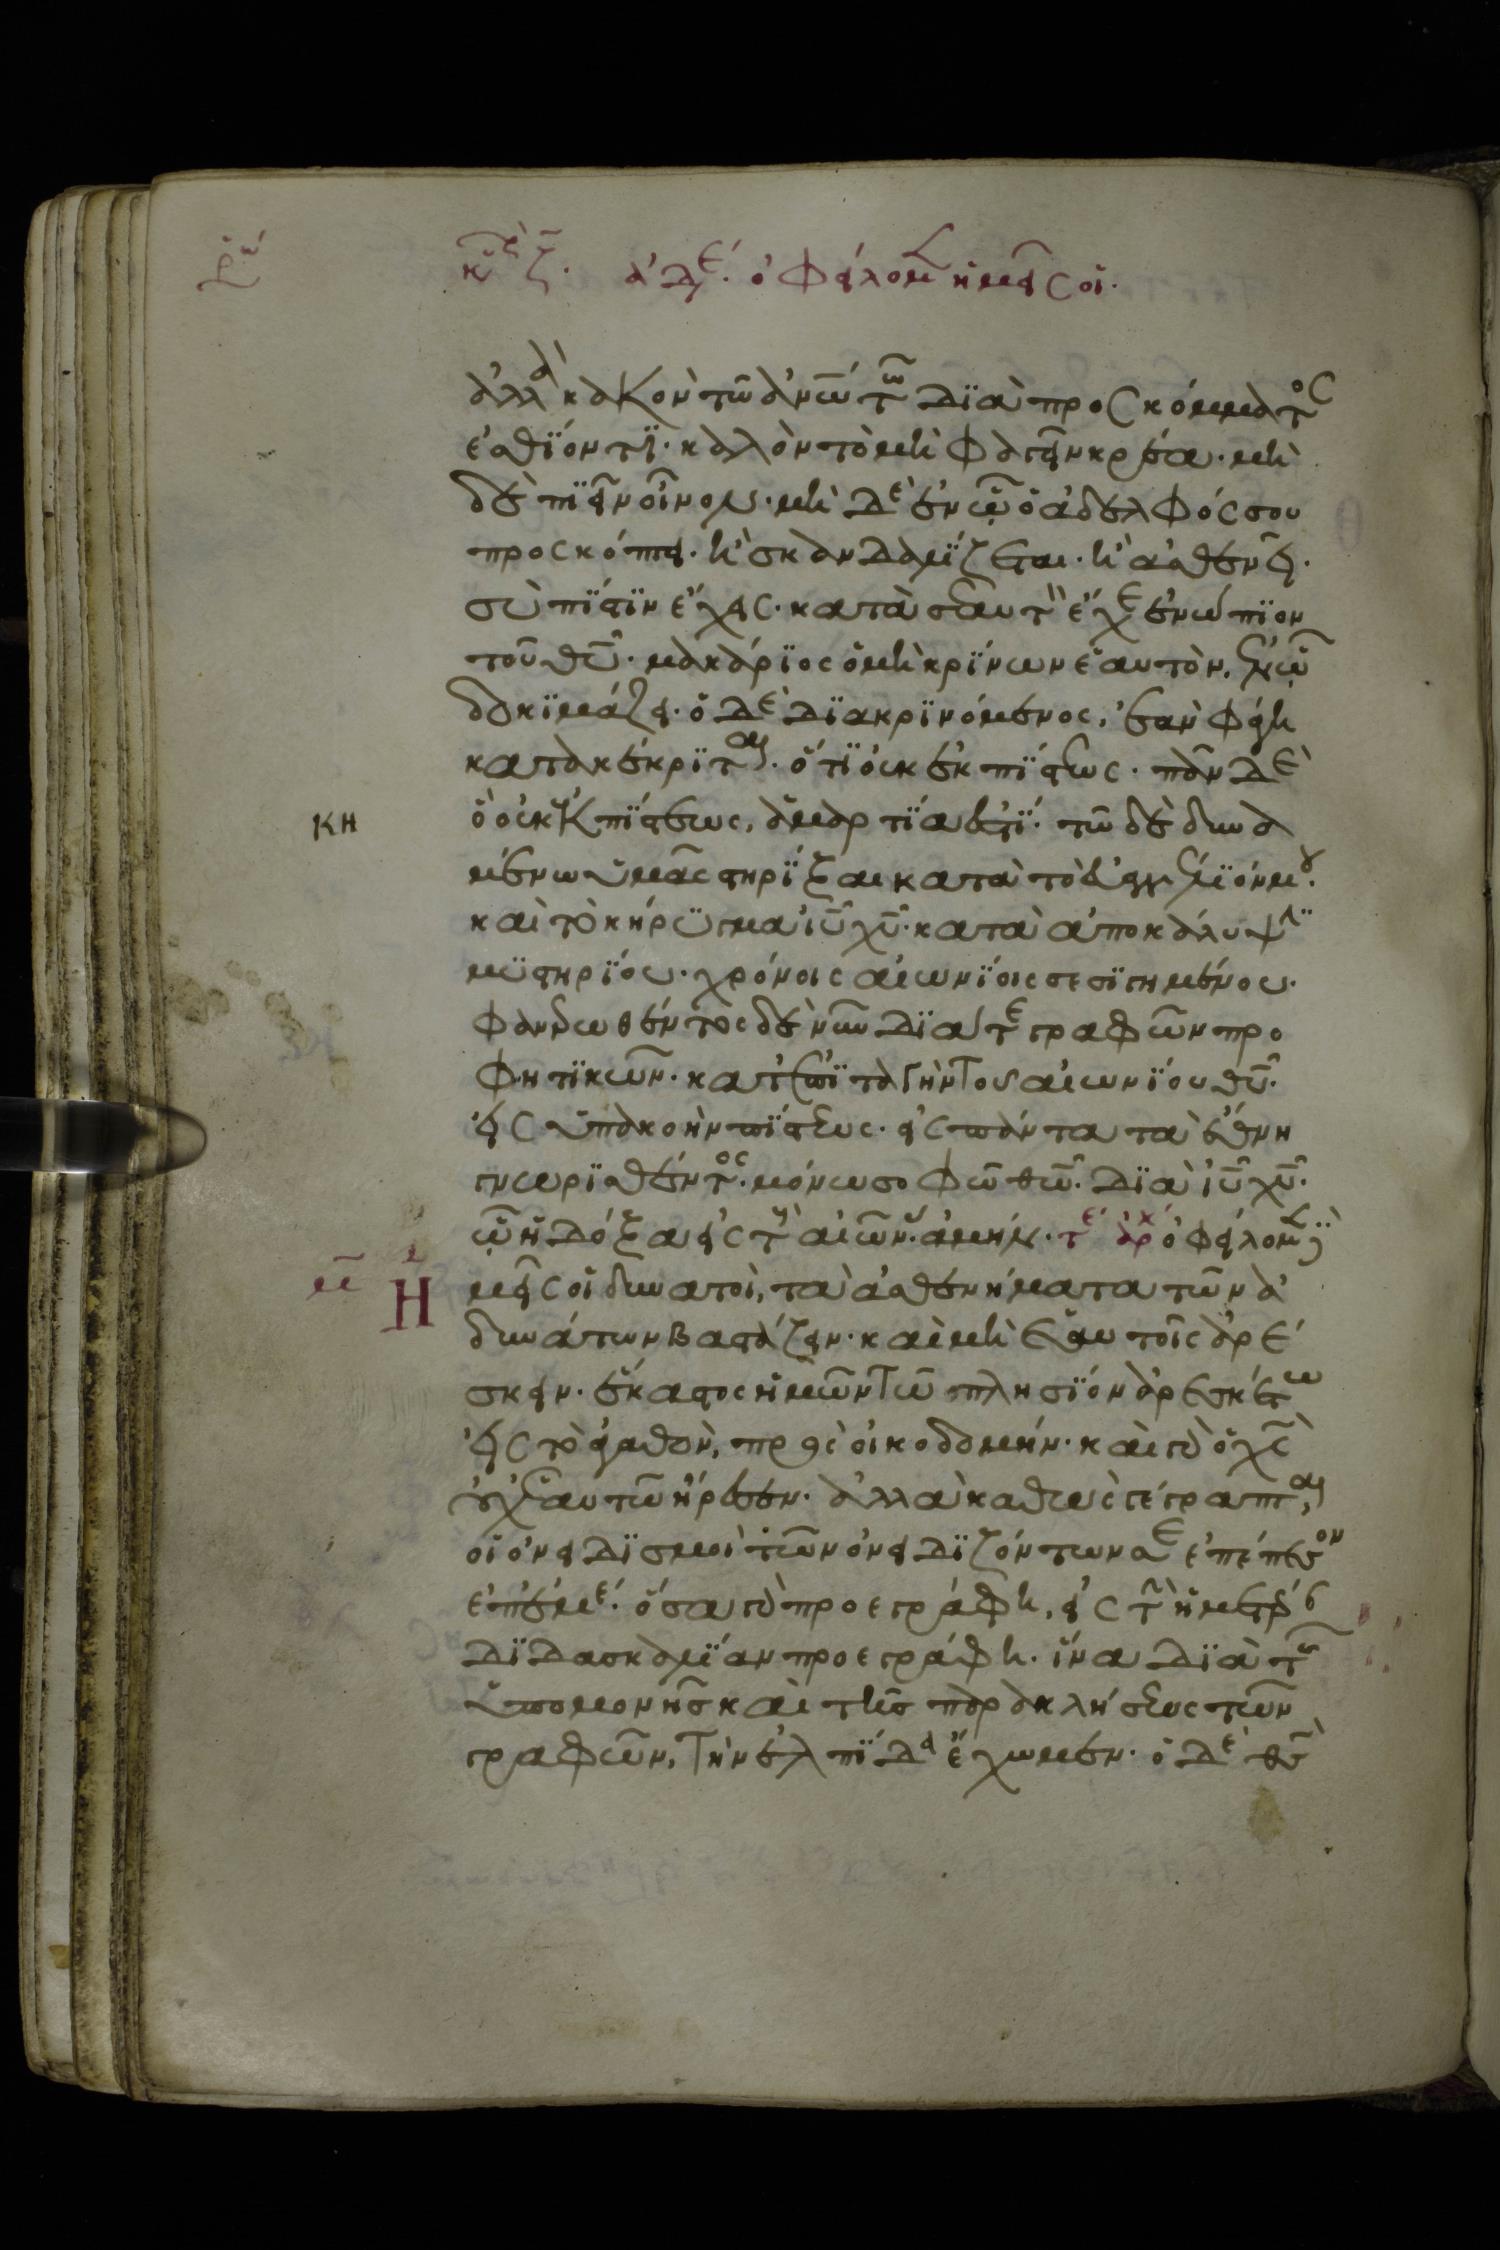 κυ ζ. ἀδε. ὀφείλομ ἡμεῖς οἱ.
ἀλλὰ κακὸν τῶ ἀνῶ τῶ διὰ προσκόμματος
ἐσθίοντι. καλὸν τὸ μὴ φαγεῖν κρέα. μὴ
δὲ πιεῖν οἶνον. μὴ δὲ ἐν ᾧ ὁ ἀδελφός σου
προσκόπτει. ἢ σκανδαλίζεται. ἢ ἀσθενεῖ.
σὺ πίστιν ἔχεις. κατὰ σεαυτὸν ἔχε ἐνώπιον
τοῦ θυ. μακάριος ὁ μὴ κρίνων ἑαυτὸν, ἐν ᾧ
δοκιμάζει. ὁ δὲ διακρινόμενος, ἐὰν φάγη
κατακέκριται. ὅτι οὐκ ἐκ πίστεως. πᾶν δὲ
κη
ὃ οὐκ ἐκ πίστεως, ἁμαρτία ἐστί. τῶ δὲ δυνα
μένω ὑμᾶς στηρίξαι κατὰ τὸ εὐαγγέλιόν μου.
καὶ τὸ κήρυγμα ιυ χυ. κατὰ ἀποκάλυψιν
μυστηρίου. χρόνοις αἰωνίοις σεσιγημένου.
φανερωθέντος δὲ νῦν διά τε γραφῶν προ
φητικῶν. κατ' ἐπιταγὴν τοῦ αἰωνίου θυ.
εἰς ὑπακοὴν πίστεως. εἰς πάντα τὰ ἔθνη
γνωρισθέντος. μόνω σοφῶ θω. διὰ ιυ χυ.
ᾧ ἡ δόξα εἰς τοὺς αἰῶν. ἀμήν. τε ἀρχ ὀφείλομ
Η
μεῖς οἱ δυνατοὶ, τὰ ἀσθενήματα τῶν ἀ
δυνάτων βαστάζειν. καὶ μὴ ἑαυτοῖς ἀρέ
σκειν. ἕκαστος ἡμῶν τῶ πλησίον ἀρεσκέτω
εἰς τὸ ἀγαθὸν, πρὸς οἰκοδομήν. καὶ γὰρ ὁ χς
οὐχ ἑαυτῶ ἤρεσεν. ἀλλὰ καθὼς γέγραπται,
οἱ ὀνειδισμοὶ τῶν ὀνειδιζόντων σε ἐπέπεσον
ἐπ' ἐμέ. ὅσα γὰρ προεγράφη, εἰς τὴν ἡμετέρ
διδασκαλίαν προεγράφη. ἵνα διὰ τῆς
ὑπομονῆς καὶ τῆς παρακλήσεως τῶν
γραφῶν, τὴν ἐλπίδα ἔχωμεν. ὁ δὲ θς